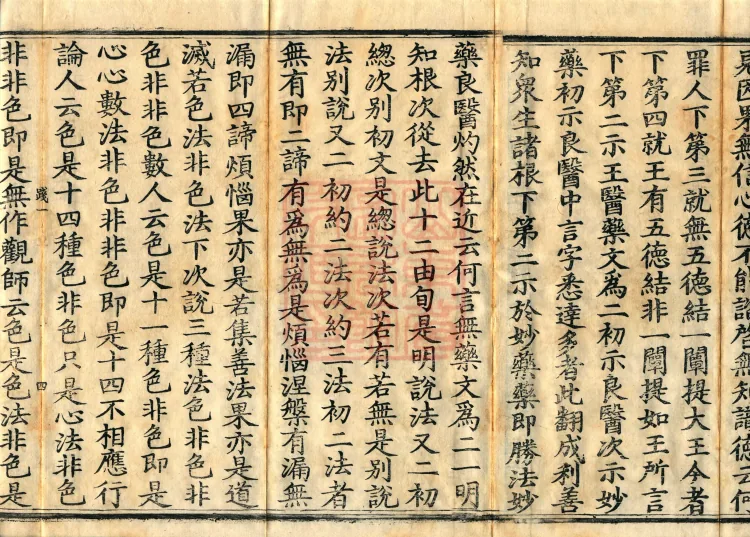 因果無信心不能無知諸德云何
罪人下第三就無五德結一闡提大王今者
下第四就王有五德結非一闡提如王所言
下第二示王醫藥文爲二初示良醫次示妙
藥初示良醫中言字悉達多者此翻成利善
知衆生諸根下第二示於妙藥藥即勝法妙
藥良醫灼然在近云何言無藥文爲二一明
知根次從去此十二由旬是明說法又二初
總次別初文是總說法次若有若無是別說
法別說又二初約二法次約三法初二法者
無有即二諦有爲無爲是煩惱涅槃有漏無
漏即四諦煩惱果亦是若集善法果亦是道
滅若色法非色法下次說三種法色非色非
色非非色數人云色是十一種色非色即是
心心數法非色非非色即是十四不相應行
論人云色是十四種色非色只是心法非色
踐一
四
非非色即是無作觀師云色是色法非色是